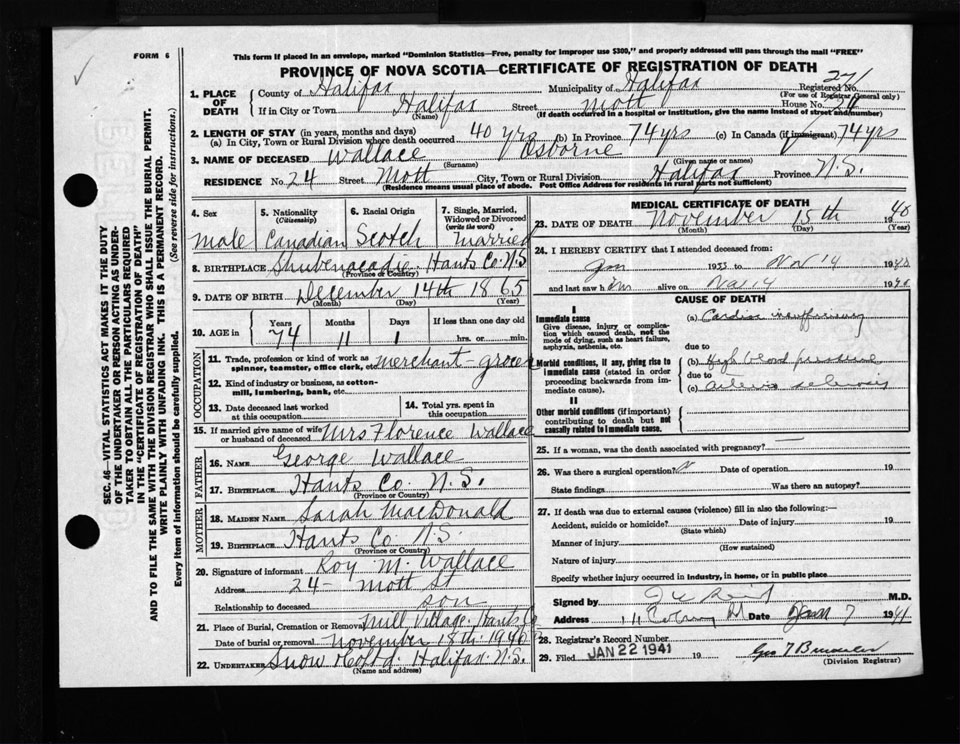 FORM 6
This form if placed in an envelope, marked "Dominion Statistics—Free, penalty for improper use $300," and properly addressed will pass through the mail "FREE"
PROVINCE OF NOVA SCOTIA—CERTIFICATE OF REGISTRATION OF DEATH
SEC. 46—VITAL STATISTICS ACT MAKES IT THE DUTY
OF THE UNDERTAKER OR PERSON ACTING AS UNDER-
TAKER TO OBTAIN ALL THE PARTICULARS REQUIRED
IN THE "CERTIFICATE OF REGISTRATION OF DEATH"
AND TO FILE THE SAME WITH THE DIVISION REGISTRAR WHO SHALL ISSUE THE BURIAL PERMIT.
WRITE PLAINLY WITH UNFADING INK. THIS IS A PERMANENT RECORD.
Every item of information should be carefully supplied. (See reverse side for instructions.)
1. PLACE OF DEATH County of Halifax Municipality of Halifax Registered No. 271
(For use of Registrar General only)
If in City or Town Halifax Street Mott House No. 24
(Name) (If death occurred in a hospital or institution, give the name instead of street and number)
2. LENGTH OF STAY (in years, months and days)
(a) In City, Town or Rural Division where death occurred 40 yrs (b) In Province 74 yrs (c) In Canada (if immigrant) 74 yrs
3. NAME OF DECEASED Wallace, Osborne
(Surname) (Given name or names)
RESIDENCE No. 24 Street Mott City, Town or Rural Division Halifax Province N.S.
(Residence means usual place of abode. Post Office Address for residents in rural parts not sufficient)
4. Sex Male
5. Nationality (Citizenship) Canadian
6. Racial Origin Scotch
7. Single, Married, Widowed or Divorced (write the word) Married
8. BIRTHPLACE Shubenacadie, Hants Co. N.S.
(Province or Country)
9. DATE OF BIRTH December 14th 1865
(Month) (Day) (Year)
10. AGE in Years 74 Months 11 Days 1 If less than one day old hrs. or min.
OCCUPATION
11. Trade, profession or kind of work as spinner, teamster, office clerk, etc. merchant-grocer
12. Kind of industry or business, as cotton-mill, lumbering, bank, etc.
13. Date deceased last worked at this occupation
14. Total yrs. spent in this occupation
15. If married give name of wife or husband of deceased Mrs Florence Wallace
FATHER
16. NAME George Wallace
17. BIRTHPLACE Hants Co. N.S.
(Province or Country)
MOTHER
18. MAIDEN NAME Sarah MacDonald
19. BIRTHPLACE Hants Co N.S.
(Province or Country)
20. Signature of informant Roy M. Wallace
Address 24 - Mott St
Relationship to deceased son
21. Place of Burial, Cremation or Removal Mill Village, Hants Co
Date of burial or removal November 18th 1940
22. UNDERTAKER Snow Halifax N.S.
(Name and address)
MEDICAL CERTIFICATE OF DEATH
23. DATE OF DEATH November 15th 1940
(Month) (Day) (Year)
24. I HEREBY CERTIFY that I attended deceased from:
Jan 1933 to Nov 14 1940
and last saw him alive on Nov 14 1940
CAUSE OF DEATH
Immediate cause
Give disease, injury or complication which caused death, not the mode of dying, such as heart failure, asphyxia, asthenia, etc.
(a) Cardiac insufficiency
due to
Morbid conditions, if any, giving rise to immediate cause (stated in order proceeding backwards from immediate cause).
(b) High blood pressure
due to
(c) arterio sclerosis
II
Other morbid conditions (if important) contributing to death but not causally related to immediate cause.
25. If a woman, was the death associated with pregnancy? —
26. Was there a surgical operation? N Date of operation 19
State findings Was there an autopsy?
27. If death was due to external causes (violence) fill in also the following:—
Accident, suicide or homicide? Date of injury 19
(State which)
Manner of injury
(How sustained)
Nature of injury
Specify whether injury occurred in industry, in home, or in public place
Signed by M.D.
Address Date Jan 7 1941
28. Registrar's Record Number
29. Filed JAN 22 1941 19
(Division Registrar)